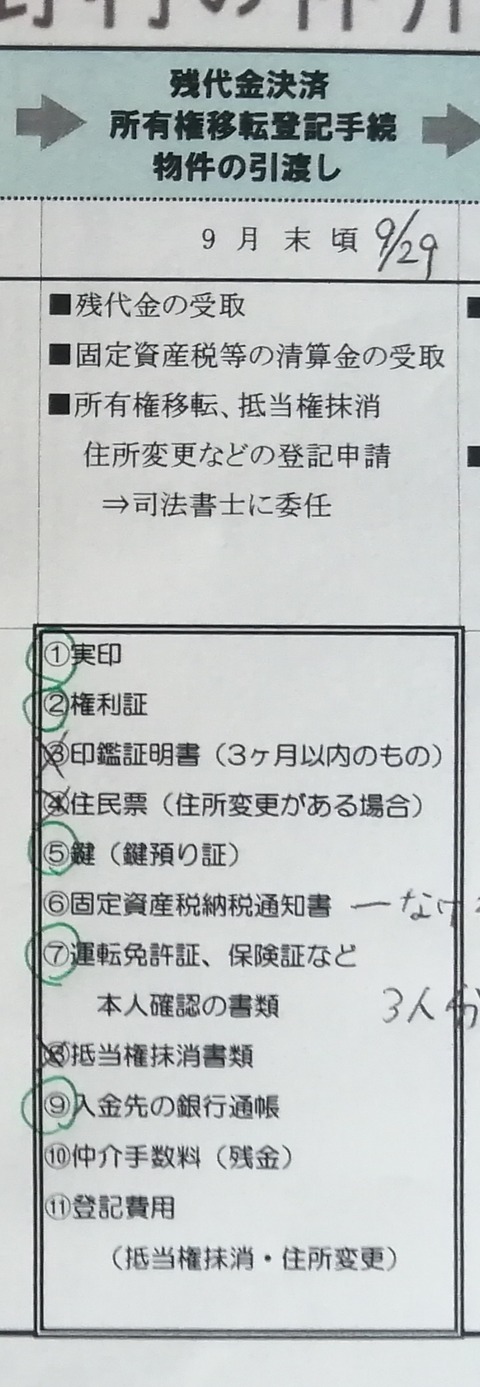 残代金決済
所有権移転登記手続
物件の引渡し
9月末頃 9/29
■残代金の受取
■固定資産税等の清算金の受取
■所有権移転、抵当権抹消
住所変更などの登記申請
⇒司法書士に委任
①実印
②権利証
③印鑑証明書（3ヶ月以内のもの）
④住民票（住所変更がある場合）
⑤鍵（鍵預り証）
⑥固定資産税納税通知書 ーなけ
⑦運転免許証、保険証など
本人確認の書類 3人分
⑧抵当権抹消書類
⑨入金先の銀行通帳
⑩仲介手数料（残金）
⑪登記費用
（抵当権抹消・住所変更）